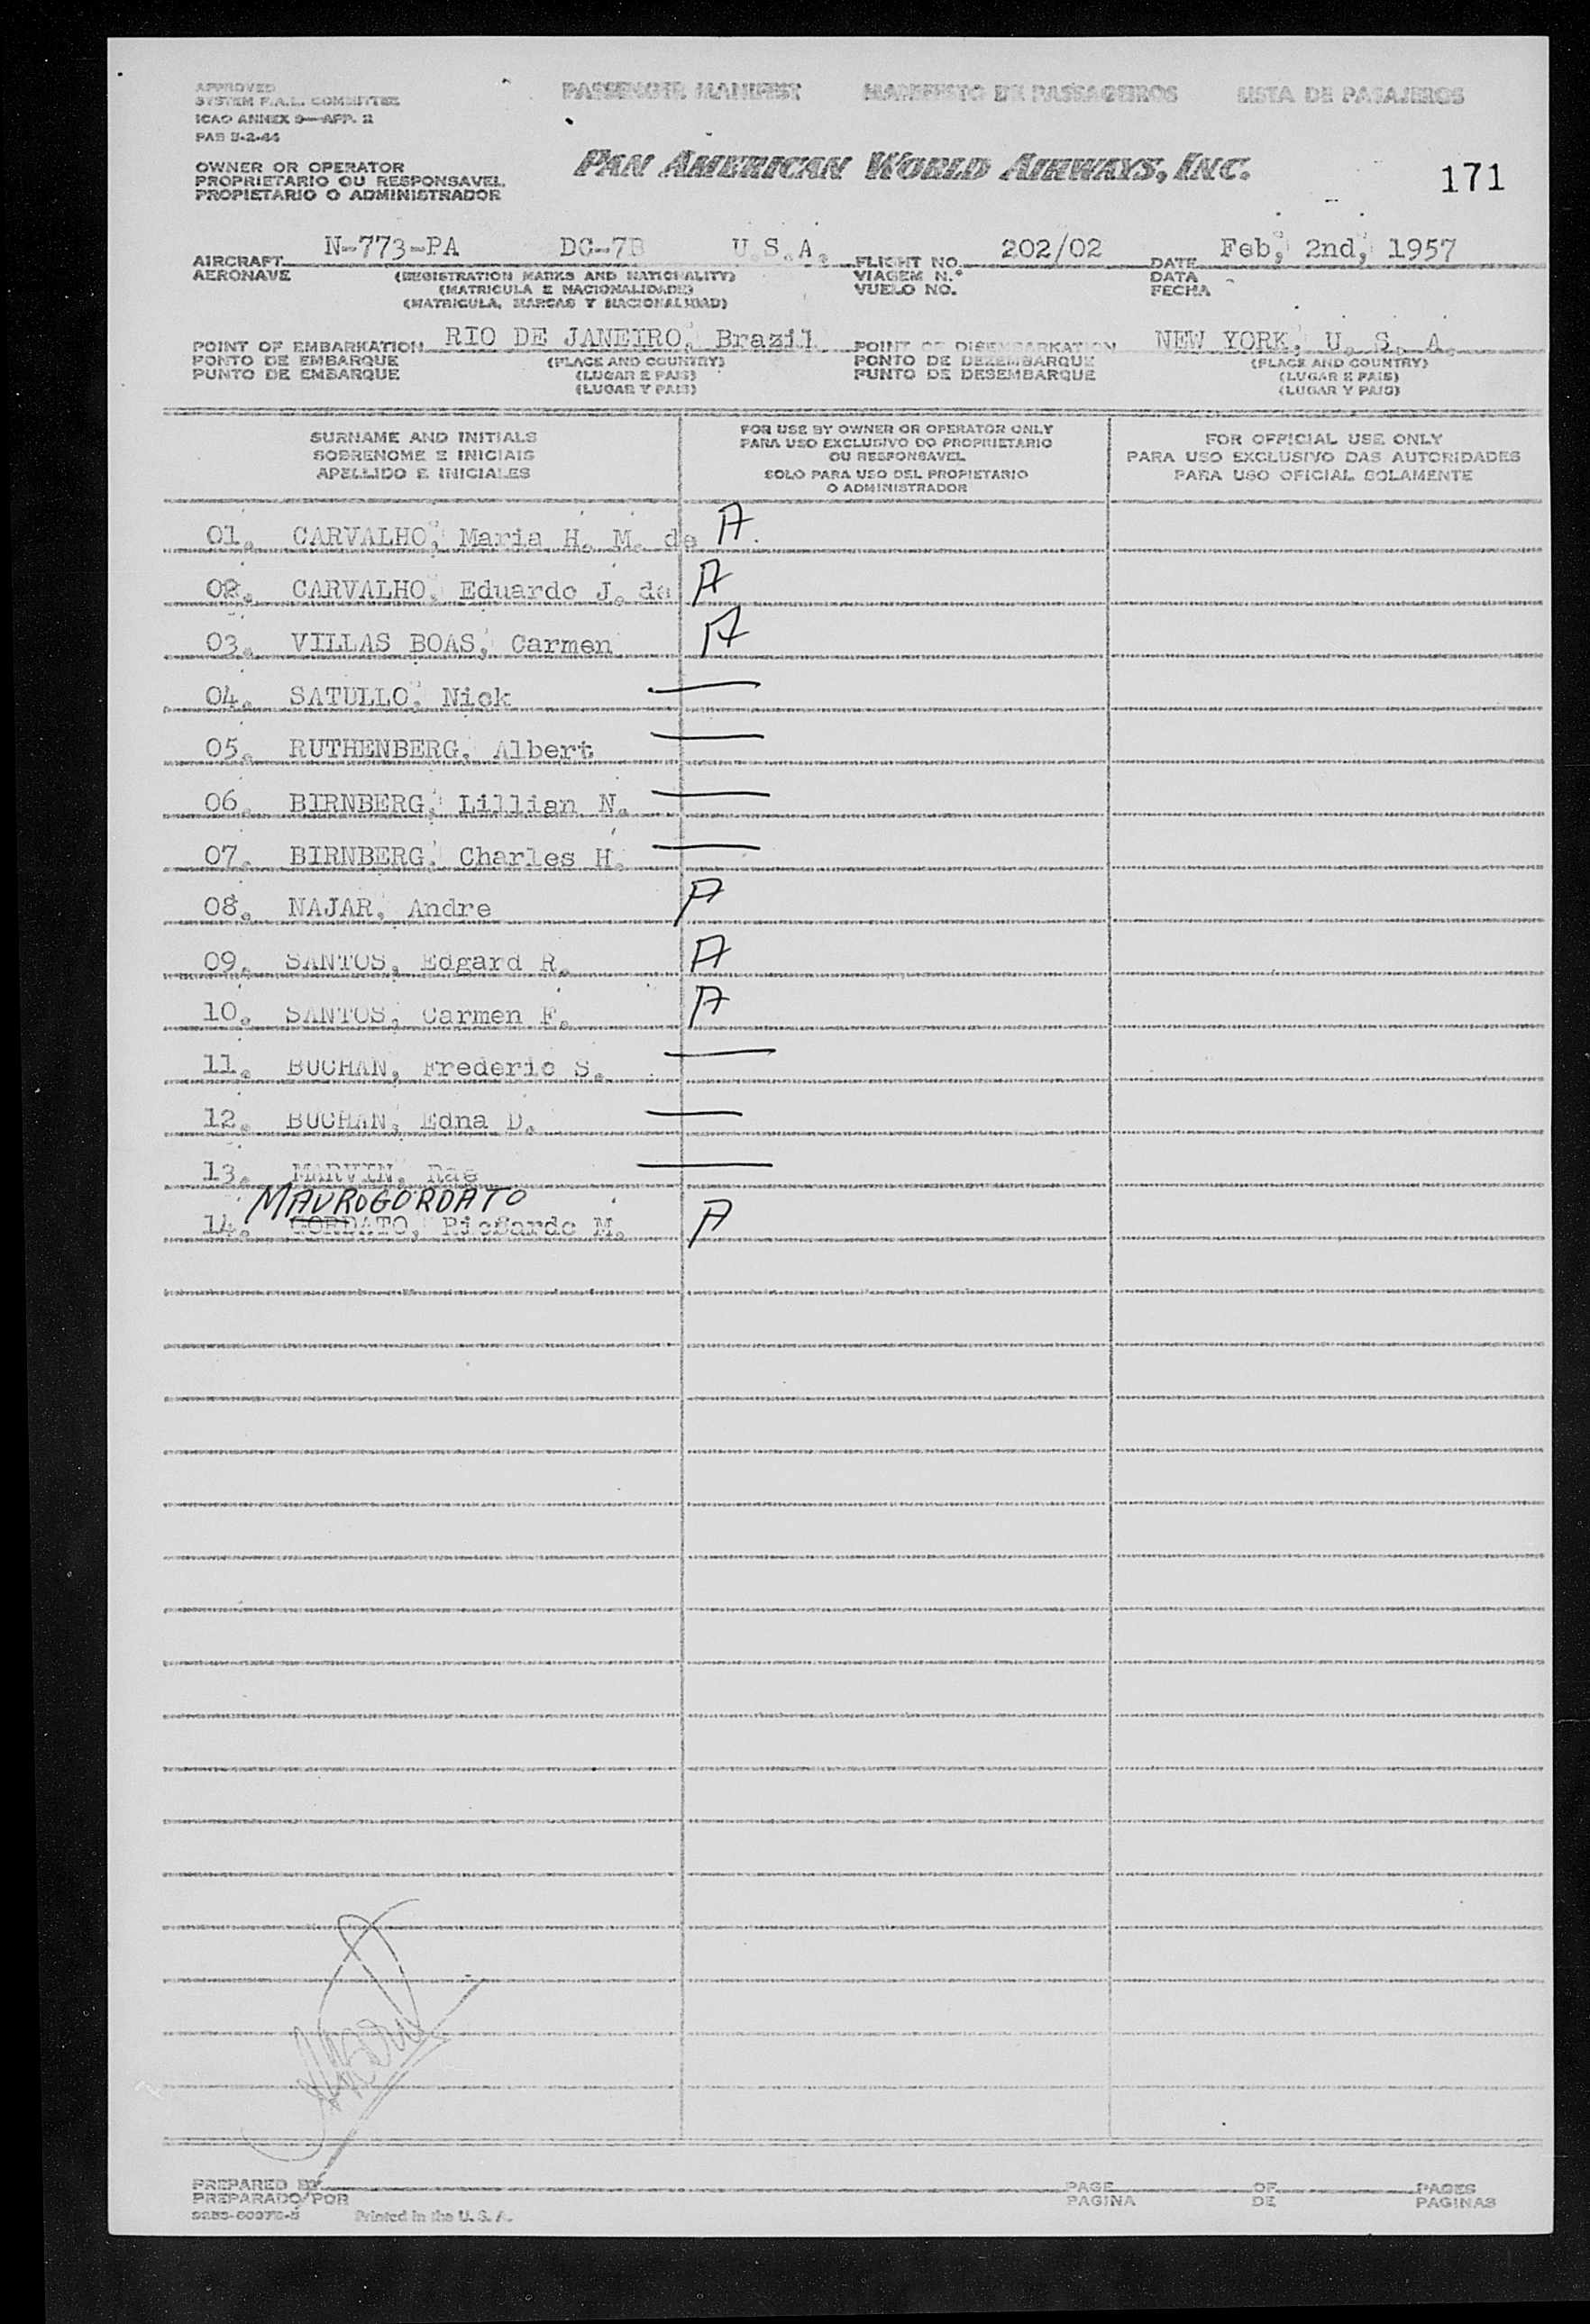 APPROVED
SYSTEM F.A.L. COMMITTEE
ICAO ANNEX 9—APP. 2
PASSENGER MANIFEST MANIFESTO DE PASSAGEIROS LISTA DE PASAJEROS
OWNER OR OPERATOR
PROPRIETARIO OU RESPONSAVEL
PROPIETARIO O ADMINISTRADOR
PAN AMERICAN WORLD AIRWAYS, INC.
171
AIRCRAFT N-773-PA DC-7B U.S.A. FLIGHT NO. 202/02 DATE Feb, 2nd, 1957
AERONAVE (REGISTRATION MARKS AND NATIONALITY) VIAGEM N.º DATA
(MATRICULA E NACIONALIDADE) VUELO NO. FECHA
(MATRICULA, MARCAS Y NACIONALIDAD)
POINT OF EMBARKATION RIO DE JANEIRO, Brazil POINT OF DISEMBARKATION NEW YORK, U. S. A.
PONTO DE EMBARQUE (PLACE AND COUNTRY) PONTO DE DEZEMBARQUE (PLACE AND COUNTRY)
PUNTO DE EMBARQUE (LUGAR E PAIS) PUNTO DE DESEMBARQUE (LUGAR E PAIS)
(LUGAR Y PAIS) (LUGAR Y PAIS)
SURNAME AND INITIALS
SOBRENOME E INICIAIS
APELLIDO E INICIALES
FOR USE BY OWNER OR OPERATOR ONLY
PARA USO EXCLUSIVO DO PROPRIETARIO
OU RESPONSAVEL
SOLO PARA USO DEL PROPIETARIO
O ADMINISTRADOR
FOR OFFICIAL USE ONLY
PARA USO EXCLUSIVO DAS AUTORIDADES
PARA USO OFICIAL SOLAMENTE
01. CARVALHO, Maria H. M. de A
02. CARVALHO, Eduardo J. de A
03. VILLAS BOAS, Carmen A
04. SATULLO, Nick —
05. RUTHENBERG, Albert —
06. BIRNBERG, Lillian N. —
07. BIRNBERG, Charles H. —
08. NAJAR, Andre A
09. SANTOS, Edgard R. A
10. SANTOS, Carmen F. A
11. BUCHAN, Frederic S. —
12. BUCHAN, Edna D. —
13. MARVIN, Rae —
MAVROGORDATO
14. GORDATO, Ricardo M. A
PREPARED BY PAGE OF PAGES
PREPARADO POR PAGINA DE PAGINAS
Printed in the U. S. A.